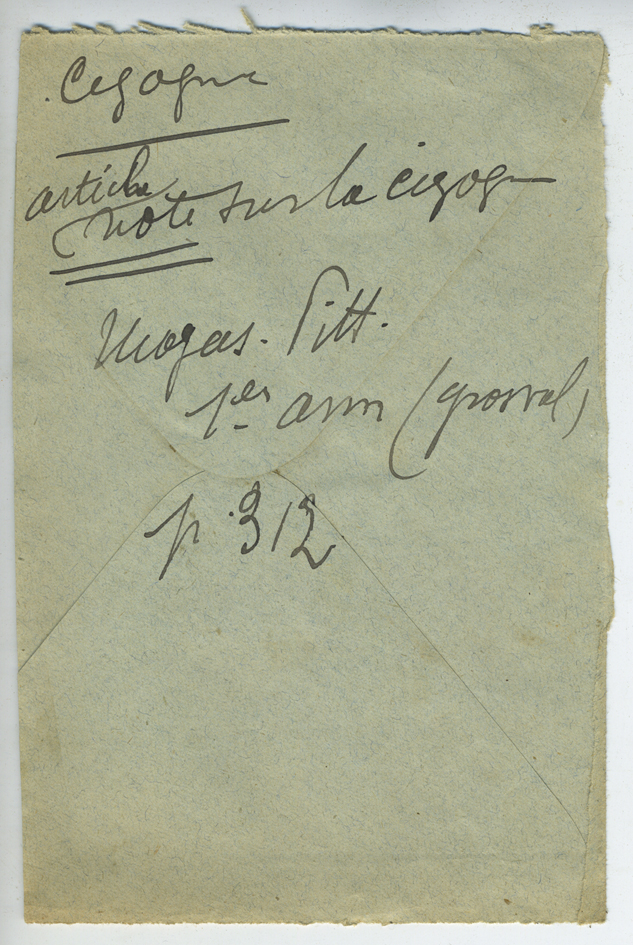 Cigogne
article
note sur la cigogne
Magas. Pitt.
1er ann (grosval)
p. 312